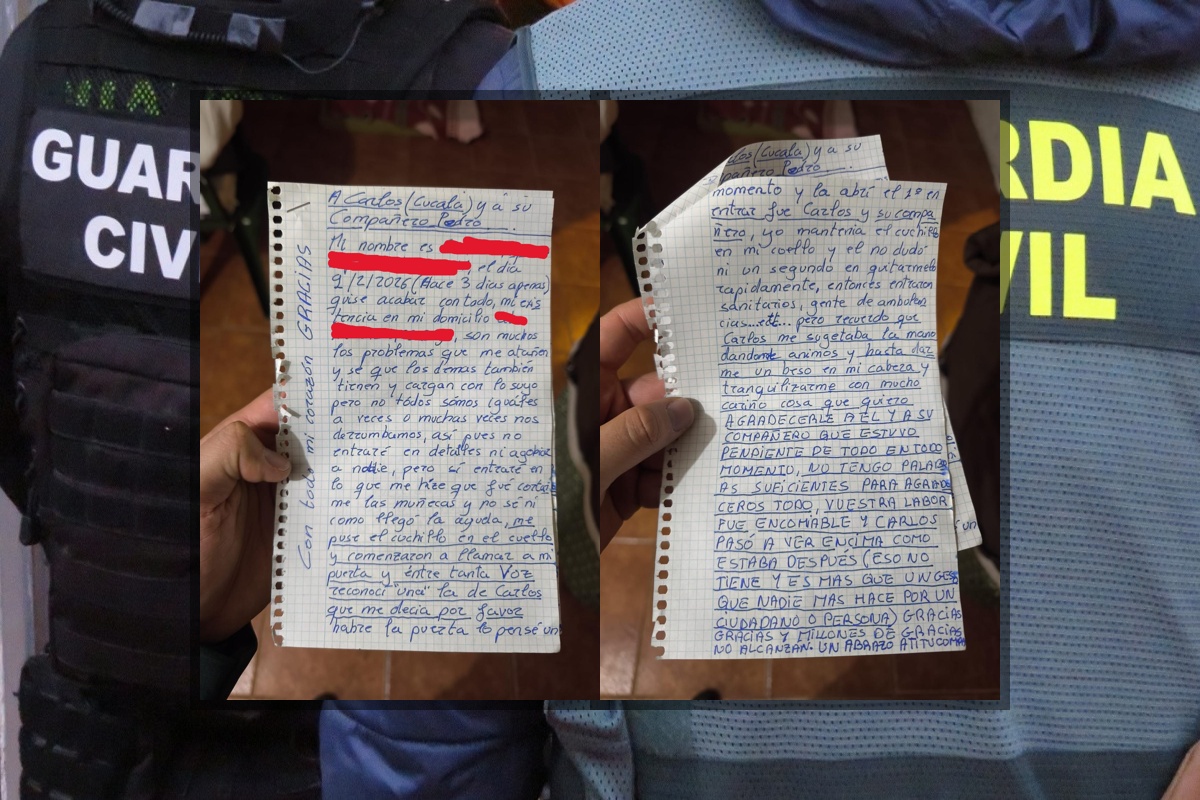 VIA
GUAR
CIV
RDIA
VIL
A Carlos (Cucala) y a su
Compañero Pedro.
Mi nombre es
, el día
9/2/2026 (Hace 3 dias apenas)
quise acabar con todo, mi exis
tencia en mi domicilio
, son muchos
los problemas que me atañen
y se que los demas también
tienen y cargan con lo suyo
pero no todos sómos iguales
a veces o muchas veces nos
derrumbamos, así pues no
entraré en detalles ni agobiar
a nadie, pero sí entraré en
lo que me hize que fué cortar
me las muñecas y no sé ni
como llegó la ayuda, me
puse el cuchillo en el cuello
y comenzaron a llamar a mi
puerta y entre tanta Voz
reconocí "una" la de Carlos
que me decia por favor
habre la puerta lo pensé un
Con todo mi corazón GRACIAS
los (Cucala) y a su
pañero Pedro
momento y la abrí el 1º en
entrar fue Carlos y su compa
ñero, yo mantenia el cuchillo
en mi cuello y el no dudó
ni un segundo en quitarmelo
rapidamente, entonces entraron
sanitarios, gente de ambulan
cias... pero recuerdo que
Carlos me sugetaba la mano
dandome animos y hasta dar
me un beso en mi cabeza y
tranquilizarme con mucho
cariño cosa que quiero
AGRADECERLE A EL Y A SU
COMPAÑERO QUE ESTUVO
PENDIENTE DE TODO EN TODO
MOMENTO, NO TENGO PALABR
AS SUFICIENTES PARA AGRADE
CEROS TODO, VUESTRA LABOR
FUE ENCOMIABLE Y CARLOS
PASÓ A VER ENCIMA COMO
ESTABA DESPUÉS (ESO NO
TIENE Y ES MAS QUE UN GES
QUE NADIE MAS HACE POR UN
CIUDADANO O PERSONA) GRACIAS
GRACIAS Y MILLONES DE GRACIAS
NO ALCANZAN. UN ABRAZO A TI TU COMPA